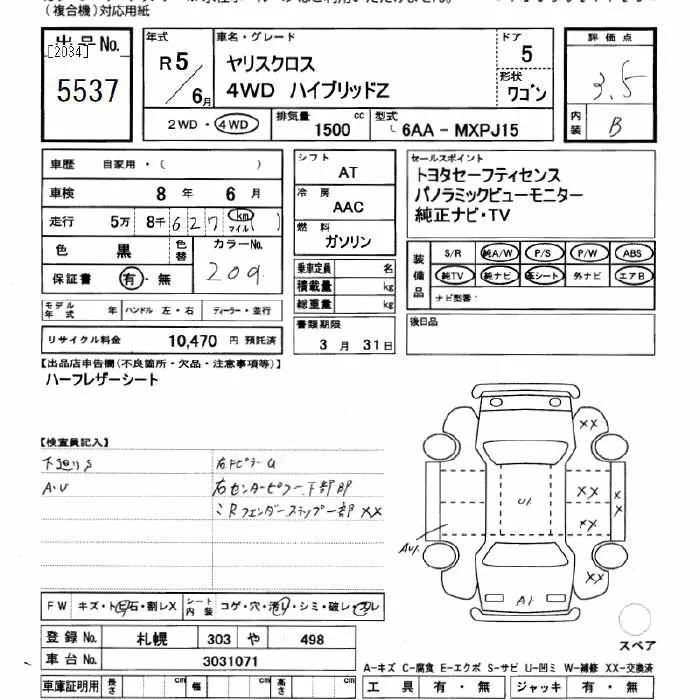 (複合機)対応用紙
出品No.
[2034]
5537
年式
R5/6月
車名・グレード
ヤリスクロス
4WD ハイブリッドZ
ドア
5
形状
ワゴン
評価点
3.5
内装
B
2WD・4WD
排気量
1500 cc
型式
6AA - MXPJ15
車歴 自家用・( )
車検 8年 6月
走行 5万 8千 627 km マイル ( )
色 黒
色替
カラーNo.
209
保証書 有・無
モデル年式 年
ハンドル 左・右
ディーラー・並行
リサイクル料金 10,470 円 預託済
シフト
AT
冷房
AAC
燃料
ガソリン
乗車定員 名
積載量 kg
総重量 kg
書類期限
3月 31日
セールスポイント
トヨタセーフティセンス
パノラミックビューモニター
純正ナビ・TV
装備品
S/R 純A/W P/S P/W ABS
純TV 純ナビ 革シート 外ナビ エアB
ナビ型番:
後日品
【出品店申告欄(不良箇所・欠品・注意事項等)】
ハーフレザーシート
【検査員記入】
下廻りS
右Fピラーu
A・U
右センターピラー下部凹
RフェンダーステップI部 XX
XX
XX
XX
XX
XX
U1
AU1
A1
FW キズ・トビ石・割レX
シート内装 コゲ・穴・汚レ・シミ・破レ・スレ
登録No. 札幌 303 や 498
車台No. 3031071
車庫証明用 長さ cm 幅 cm 高さ cm
スペア
A-キズ C-腐食 E-エクボ S-サビ U-凹ミ W-補修 XX-交換済
工具 有・無 ジャッキ 有・無